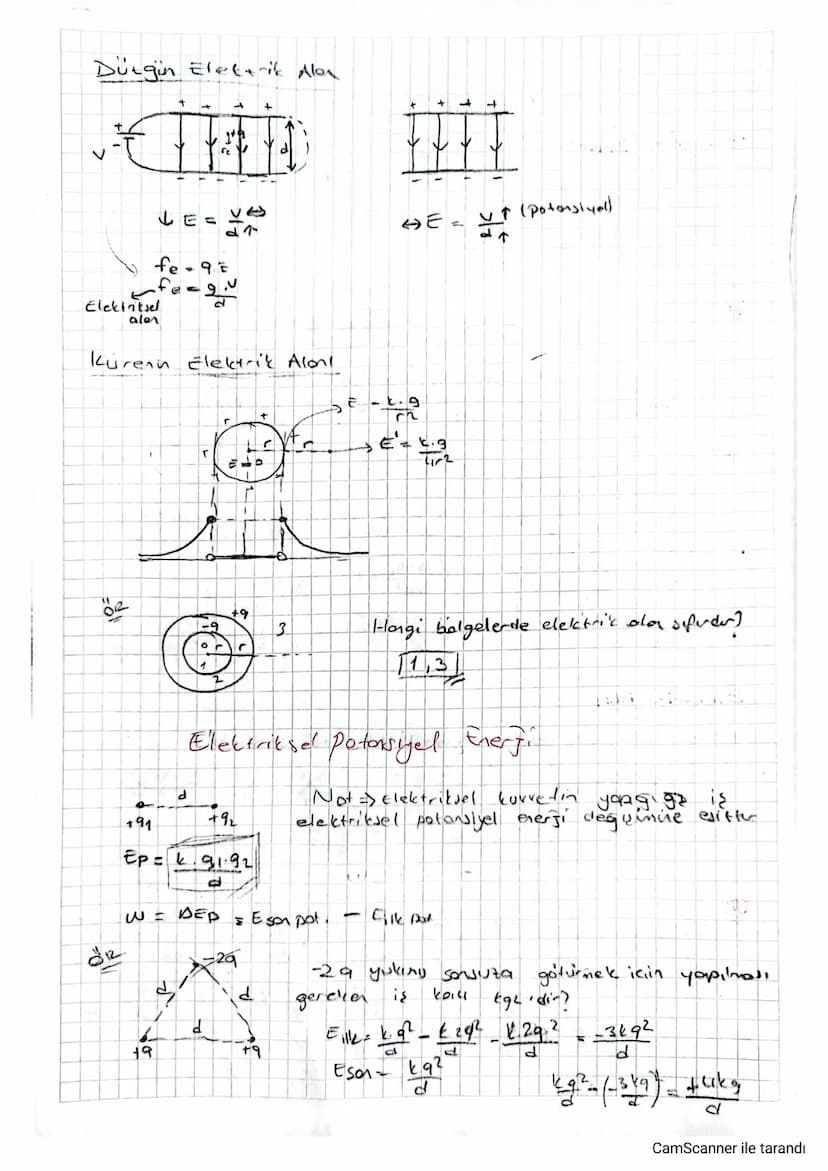 Düzgün Elektrik Alan
+ + + +
+ + + +
+
-
V
+q
fe
d
- - - - -
- - - - -
↓ E = V↔ / d↑
↔ E = V↑ / d↑ (potansiyel)
fe = q.E
fe = q.V / d
Elektriksel
alan
Kürenin Elektrik Alanı
E = k.q / r2
r + r r r
E' = k.q / 4r2
E=0
Ör
+q
-q
3
0 r r
1
2
Hangi bölgelerde elektrik alan sıfırdır?
1,3
Elektriksel Potansiyel Enerji
d
+q1 +q2
Not => Elektriksel kuvvetin yaptığı iş
elektriksel potansiyel enerji değişimine eşittir
Ep = k.q1.q2 / d
W = ΔEp = Eson pot. - Eilk pot
Ör
-2q
d d
d
+q +q
-2q yükünü sonsuza götürmek için yapılması
gereken iş kaç kq2/d'dir?
Eilk = k.q2/d - k2q2/d - k.2q2/d = -3kq2/d
Eson = kq2/d
kq2/d - (-3kq/d) = +4kq/d
CamScanner ile tarandı